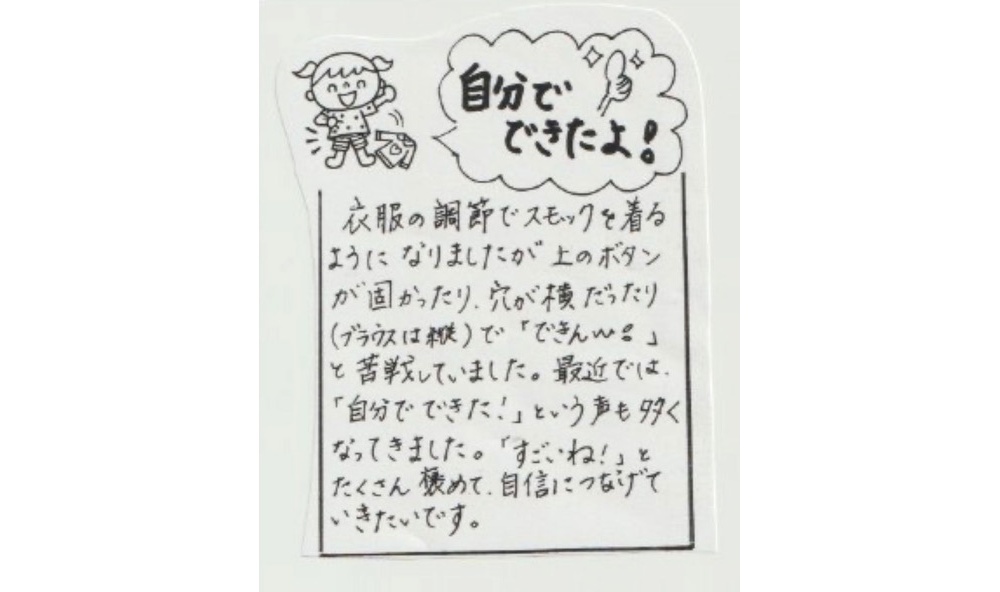 自分で
できたよ!
衣服の調節でスモックを着る
ようになりましたが上のボタン
が固かったり、穴が横だったり
(ブラウスは縦)で「できん〜!」
と苦戦していました。最近では、
「自分でできた!」という声も多く
なってきました。「すごいね!」と
たくさん褒めて、自信につなげて
いきたいです。